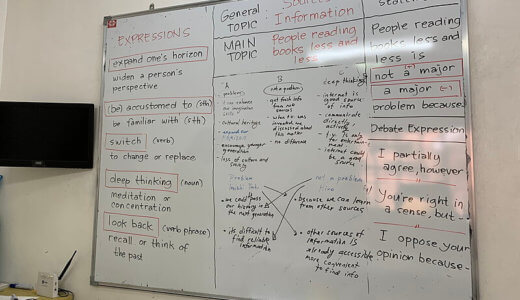 EXPRESSIONS
expand one's horizon
widen a person's
perspective
(be) accustomed to (sth)
be familiar with (sth)
switch (verb)
to change or replace
deep thinking (noun)
meditation or
concentration
look back (verb phrase)
recall or think of
the past
General
TOPIC
Information
MAIN
TOPIC
People reading
books less and
less
A
problem
cultural heritage
encourage younger
generation
loss of culture and
society
B
not a problem
get fresh info
from
sources
when t.v. was
invented
no difference
C
deep thinking
internet is
good source
of info
communicate
directly
actively
t.v. is only
for entertainment
internet could
be a good
source
Problem
we could pass
our history
the next generation
its difficult to
find reliable
information
not a problem
Hiro
because we can learn
from other sources
other sources of
information is
already accessible
more convenient
to find info
People reading
books less
less is
not a major (+)
a major (-)
problem because
Debate Expression
I partially
agree, however
You're right in
a sense, but
I oppose your
opinion because